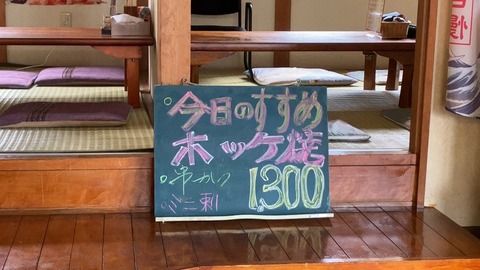 今日のすすめ
ホッケ焼
・串かつ
・ミニ刺
1300